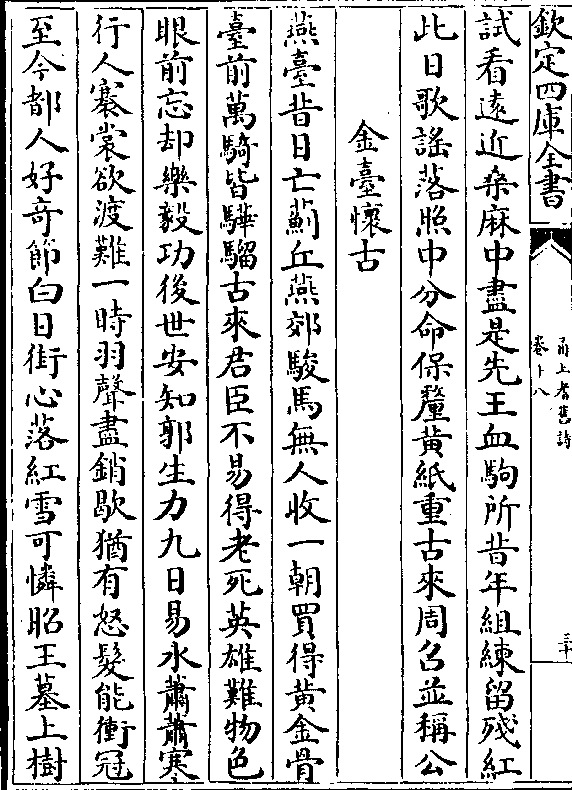 欽定四庫全書
甬上耆舊詩
卷十八
三十
試看遠近桑麻中盡是先王血駒所昔年組練留殘紅
此日歌謠落照中分命保釐黄紙重古來周召並稱公
金臺懷古
燕臺昔日亡薊丘燕郊駿馬無人收一朝買得黄金骨
臺前萬騎皆驊騮古來君臣不易得老死英雄難物色
眼前忘却樂毅功後世安知郭生力九日易水蕭蕭寒
行人褰裳欲渡難一時羽聲盡銷歇猶有怒髮能衝冠
至今都人好奇節白日街心落紅雪可憐昭王墓上樹